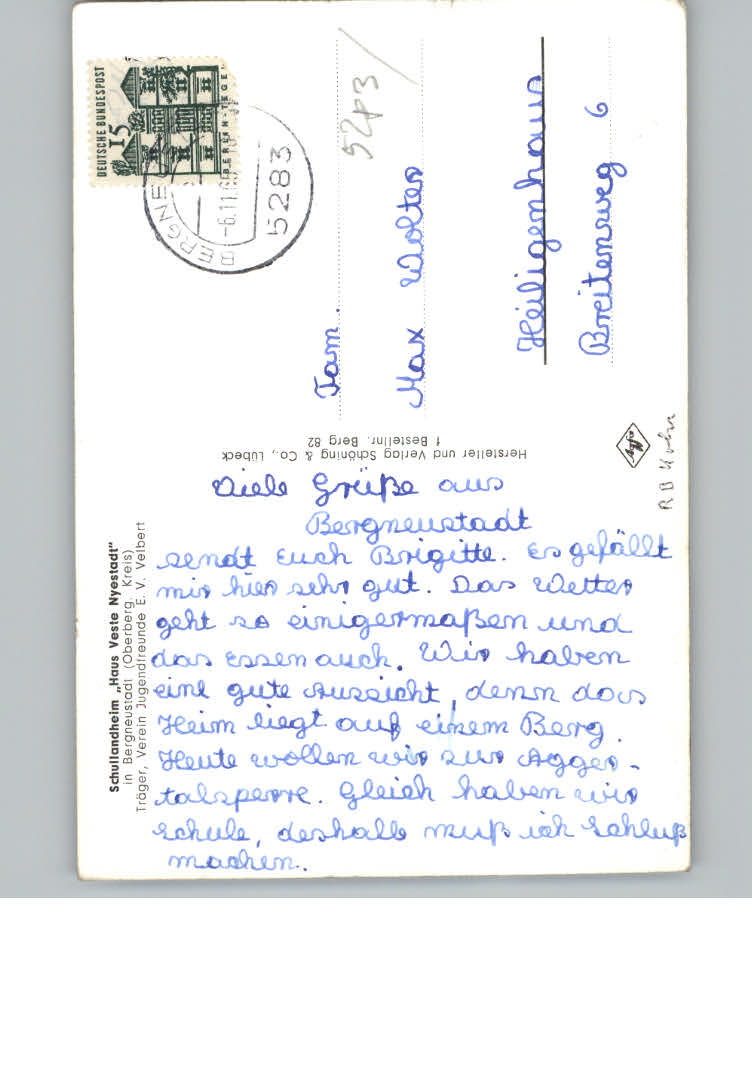 Schullandheim „Haus Veste Nyestadt"
in Bergneustadt (Oberberg. Kreis)
Träger, Verein Jugendfreunde E. V. Velbert
Viele Grüße aus
Bergneustadt
sendt Euch Brigitte. Es gefällt
mir hier sehr gut. Das Wetter
geht so einigermaßen und
das Essen auch. Wir haben
eine gute Aussicht, denn das
Heim liegt auf einem Berg.
Heute wollen wir zur Agger-
talsperre. Gleich haben wir
Schule, deshalb muß ich Schluß
machen.
Hersteller und Verlag Schöning & Co., Lübeck
f Bestellnr. Berg 82
DEUTSCHE BUNDESPOST
15
BERLIN-TEGEL
BERGNE
-6.11.
5283
5283
Fam.
Max Wolter
Heiligenhaus
Breitenweg 6